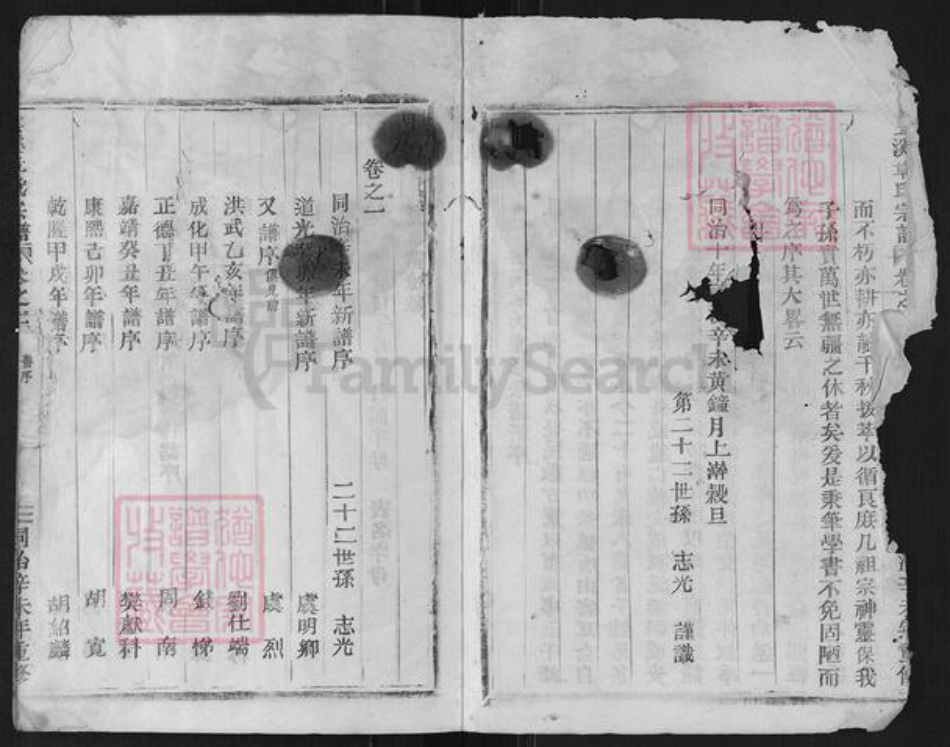 而不朽亦耕亦讀千秋拔萃以循良庶几祖宗神靈保我
子孫實萬世無疆之休者矣爰是秉筆學書不免固陋而
爲之序其大畧云
同治十年 辛未黃鐘月上澣穀旦
第二十二世孫 志光 謹識
卷之一
同治辛未年新譜序 二十二世孫 志光
道光癸卯年新譜序 虞明卿
又譜序 俱見前 虞烈
洪武乙亥年譜序 劉仕端
成化甲午年譜序 錢悌
正德丁丑年譜序 周南
嘉靖癸丑年譜序 樊獻科
康熙己卯年譜序 胡寬
乾隆甲戌年譜序 胡紹麟
同治辛未年重修
FamilySearch